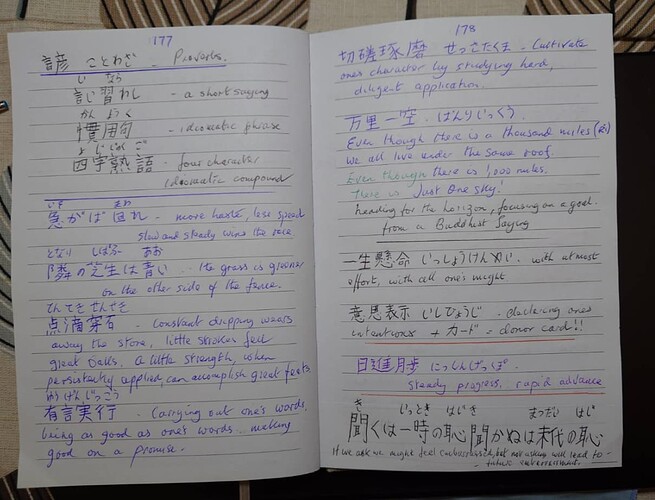 177
諺 ことわざ - Proverbs.
い なら
言い習わし - a short saying
かん よう く
慣用句 - idiomatic phrase
よ じ じゅく ご
四字熟語 - four character
idiomatic compound
いそ まわ
急がば回れ - more haste, less speed
slow and steady wins the race
となり しばふ あお
隣の芝生は青い - the grass is greener
on the other side of the fence.
てんてきせんせき
点滴穿石 - Constant dripping wears
away the stone, little strokes fell
great oaks. A little strength, when
persistently applied, can accomplish great feats.
ゆうげんじっこう
有言実行 - Carrying out one's words,
being as good as one's words.. making
good on a promise.
178
切磋琢磨 せっさたくま - Cultivate
ones character by studying hard,
diligent application.
万里一空 - ばんりいっくう.
Even though there is a thousand miles (里)
we all live under the same roof.
Even though there is 1,000 miles.
There is Just One sky!
heading for the horizon, focusing on a goal.
from a Buddhist Saying
一生懸命 いっしょうけんめい. with utmost
effort, with all one's might
意思表示 いしひょうじ - declaring ones
intentions + カード = donor card!!
日進月歩 にっしんげっぽ.
steady progress, rapid advance
き いっとき はじ き まつだい はじ
聞くは一時の恥聞かぬは末代の恥
If we ask we might feel embarrassed, but not asking will lead to
future embarrassment.